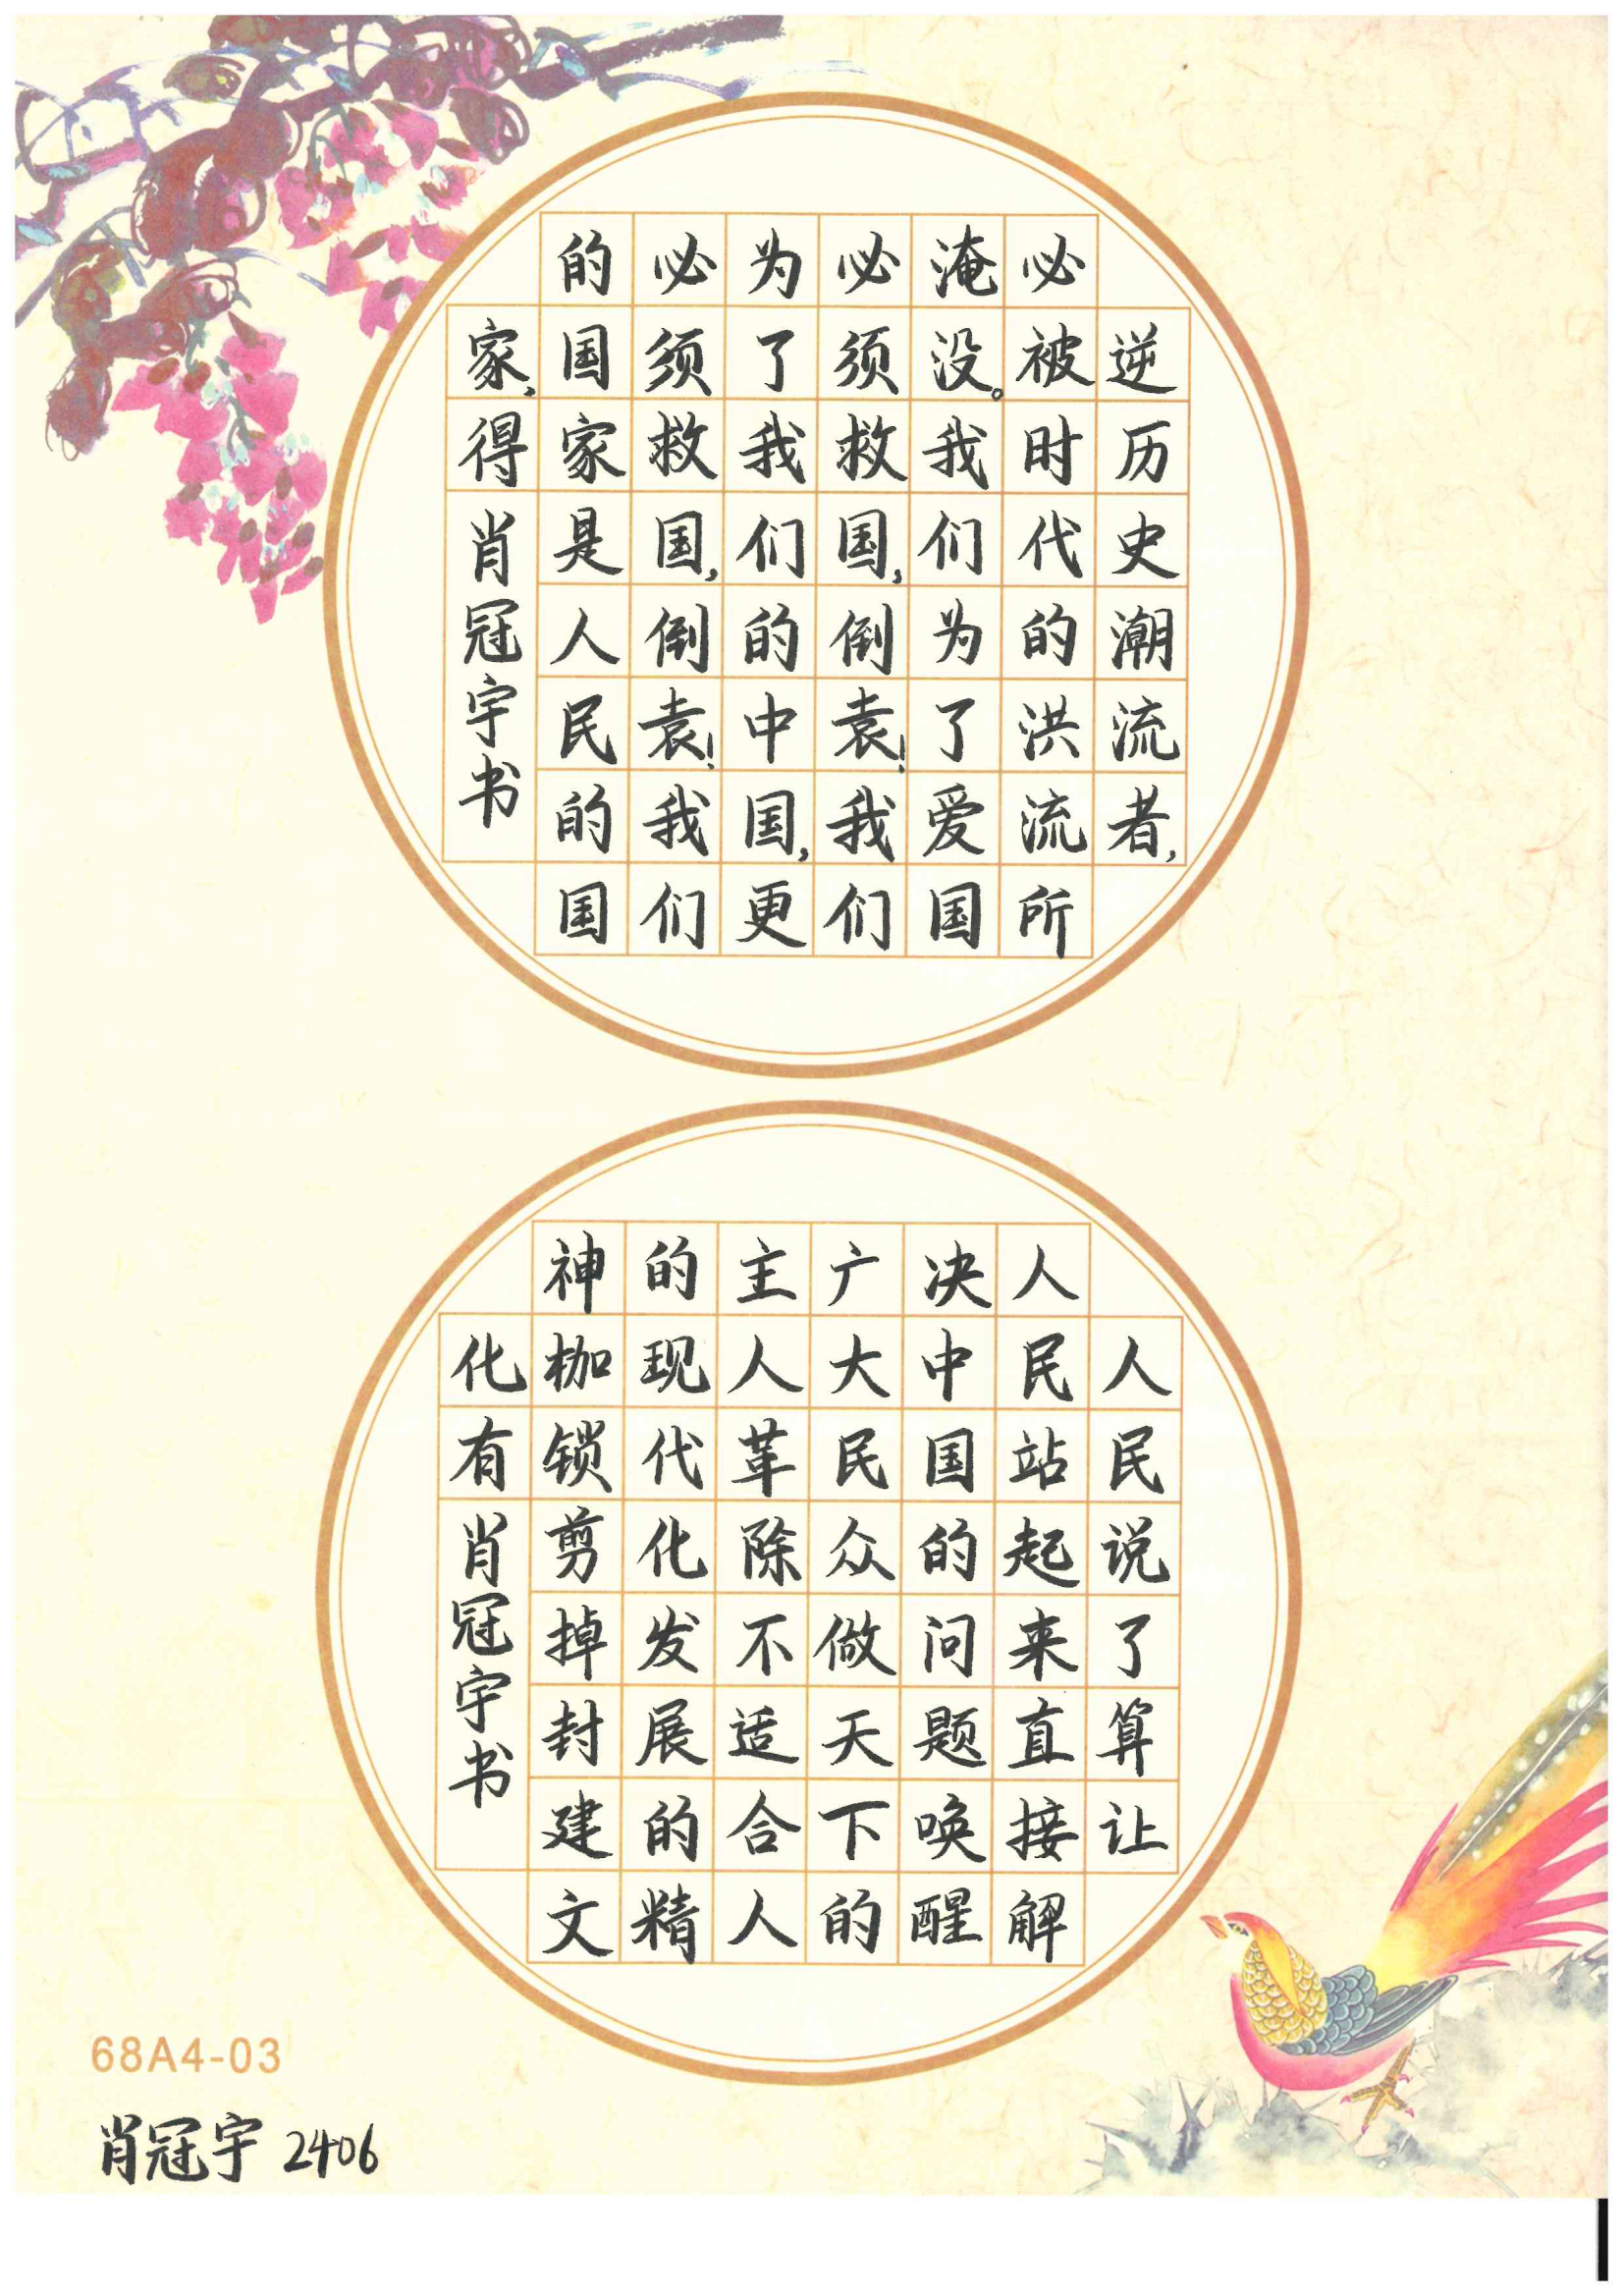 逆历史潮流者，
必被时代的洪流所
淹没。我们为了爱国
必须救国，倒袁！我们
为了我们的中国，更
必须救国，倒袁！我们
的国家是人民的国
家，得
肖冠宇书
人民说了算让
人民站起来直接解
决中国的问题唤醒
广大民众做天下的
主人革除不适合人
的现代化发展的精
神枷锁剪掉封建文
化有
肖冠宇书
68A4-03
肖冠宇 2406